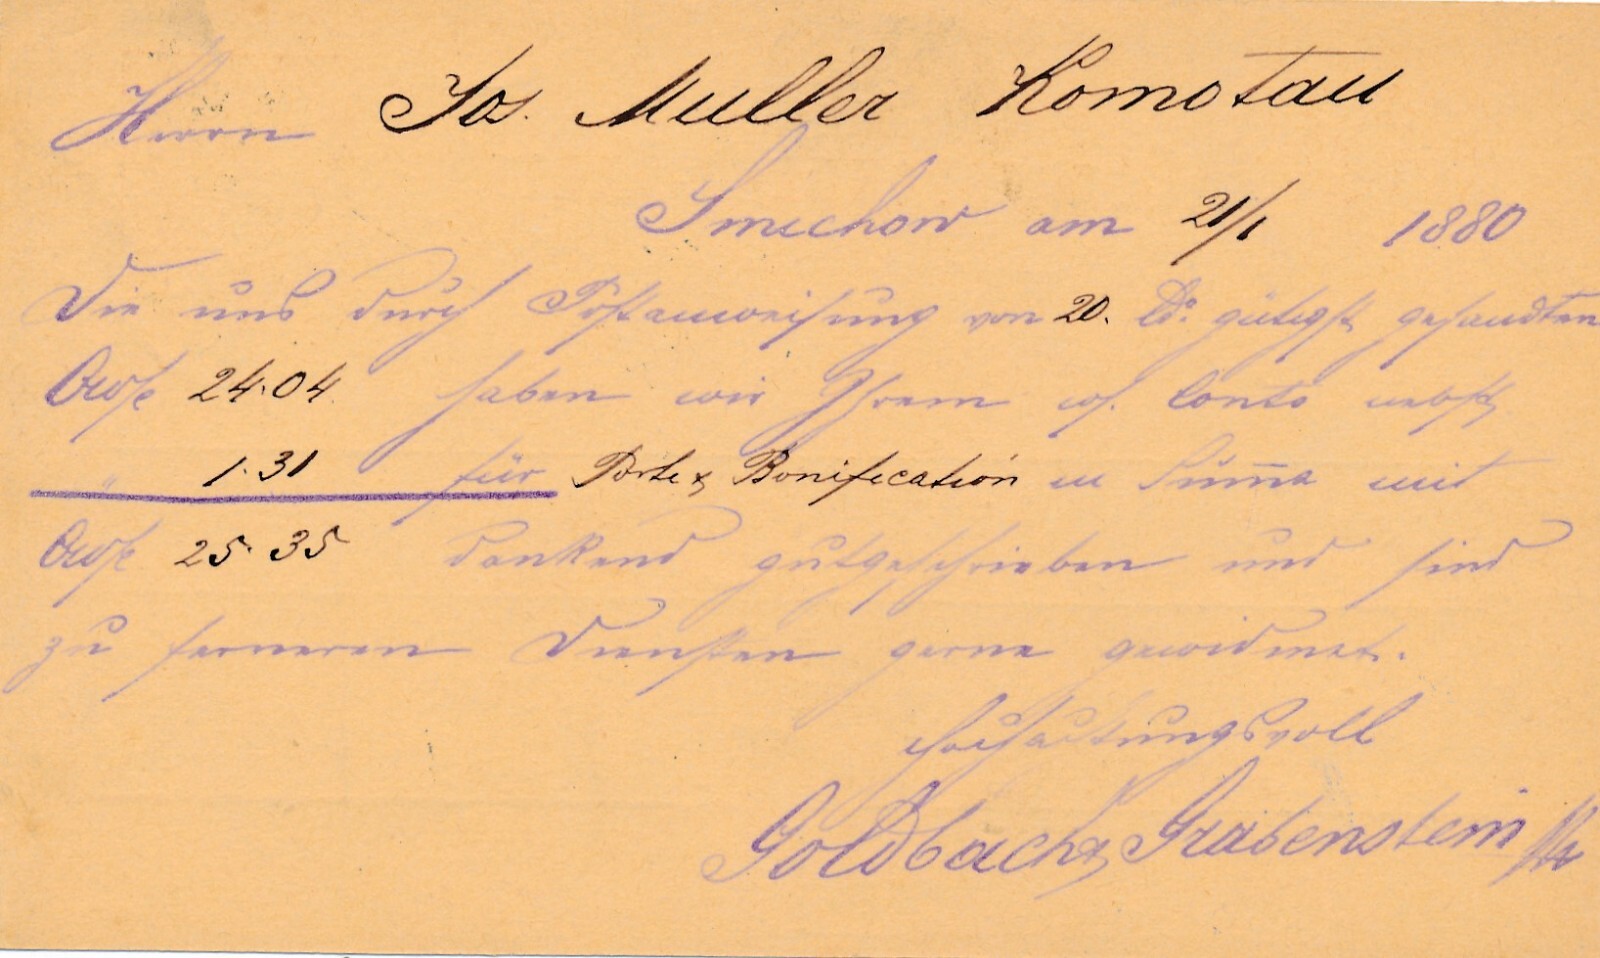 Herrn Jos. Muller Komotau
Smichow am 21/1 1880
Die uns durch Postanweisung von 20. Ds. gütigst gesandten
24.04 haben wir Ihrem w. Conto nebst
" 1.31 für Porto & Bonification in Suma mit
25.35 dankend gutgeschrieben und sind
zu ferneren Diensten gerne gewidmet.
Hochachtungsvoll
Goldbach & Grabenstein